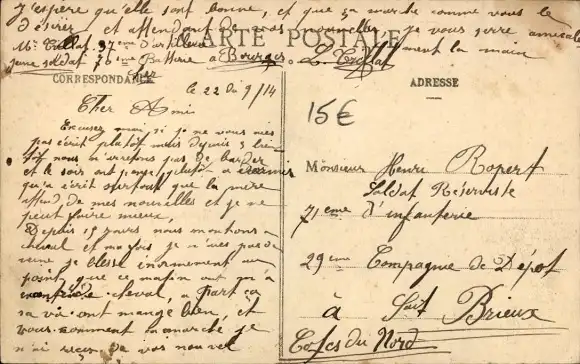 J'espère qu'elle sont bonne, et que ça marche comme vous le
désirez et attendant de vos nouvelles je vous serre amicale
ment la main
Mr Collat 37eme d'artillerie
jeune soldat 76me Batterie a Bourges.
CARTE POSTALE
CORRESPONDANCE
ADRESSE
le 22 du 9/14
15€
Cher Ami
Excusez moi si je ne vous n'ais
pas écrit plutôt mais depuis 3
nous n'arretons pas de
et le soir ont pense plutot a dormir
qu'a écrit surtout que la mère
attend de mes nouvelles et je ne
peut faire mieux,
Depuis 15 jours nous montons a
cheval et ma fois je n'ais pas de
veine je blesse énormement au
point que ce matin ont m'a
cheval, a part ça
sa va ont mange bien, et
vous comment ça marche je
n'ai reçu de vos nouvel
Monsieur Henri Ropert
Soldat Réserviste
71eme d'infanterie
29eme Compagnie de Dépot
à Saint Brieux
Côtes du Nord